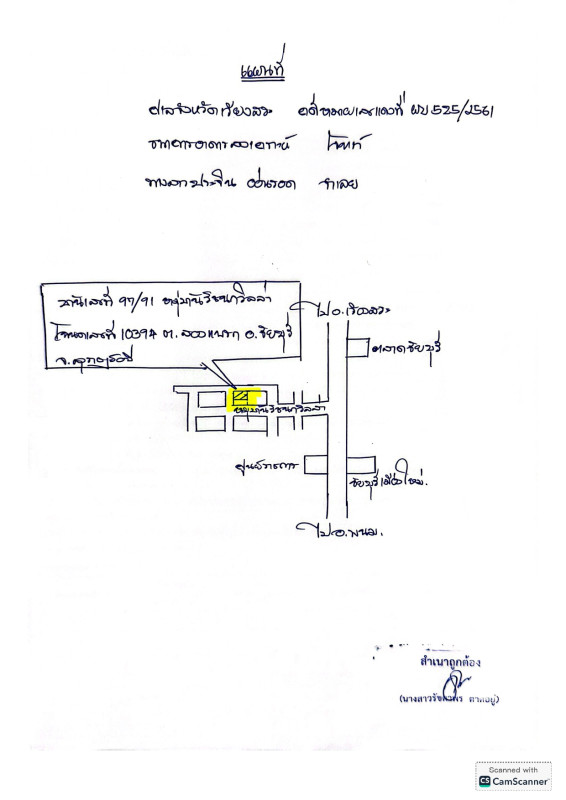 แผนที่
ศาลจังหวัดเวียงสระ คดีหมายเลขแดงที่ ผบ 525/2561
ธนาคารอาคารสงเคราะห์ โจทก์
จำเลย
บ้านเลขที่ 97/91 หมู่บ้านวิชนาวิลล่า
โฉนดเลขที่ 10394 ต.สองแพรก อ.ชัยบุรี
จ.สุราษฎร์ธานี
ไป อ.เวียงสระ
ตลาดชัยบุรี
หมู่บ้านวิชนาวิลล่า
ศูนย์ราชการ
ชัยบุรีเมืองใหม่.
ไป อ.พนม.
สำเนาถูกต้อง
Scanned with
CS CamScanner